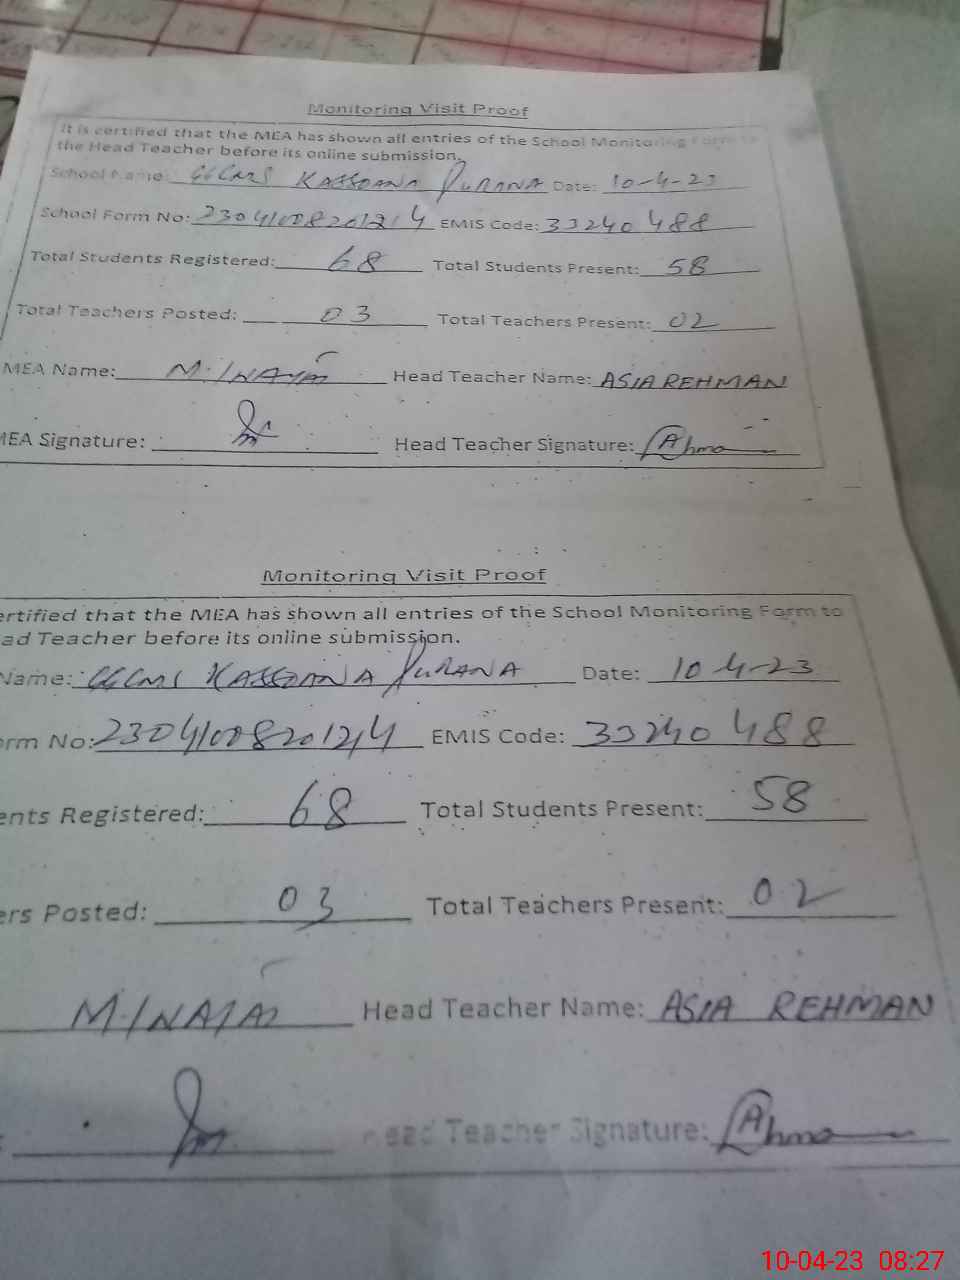 Monitoring Visit Proof
It is certified that the MEA has shown all entries of the School Monitoring Form to
the Head Teacher before its online submission.
School Name: GGCMS KASSOANA PURANA Date: 10-4-23
School Form No: 23041008201214 EMIS Code: 33240488
Total Students Registered: 68 Total Students Present: 58
Total Teachers Posted: 03 Total Teachers Present: 02
MEA Name: M. INAYAT Head Teacher Name: ASIA REHMAN
MEA Signature: Head Teacher Signature:
Monitoring Visit Proof
ertified that the MEA has shown all entries of the School Monitoring Form to
ad Teacher before its online submission.
Name: GGCMS KASSOANA PURANA Date: 10-4-23
orm No: 23041008201214 EMIS Code: 33240488
ents Registered: 68 Total Students Present: 58
ers Posted: 03 Total Teachers Present: 02
M. INAYAT Head Teacher Name: ASIA REHMAN
Head Teacher Signature:
10-04-23 08:27